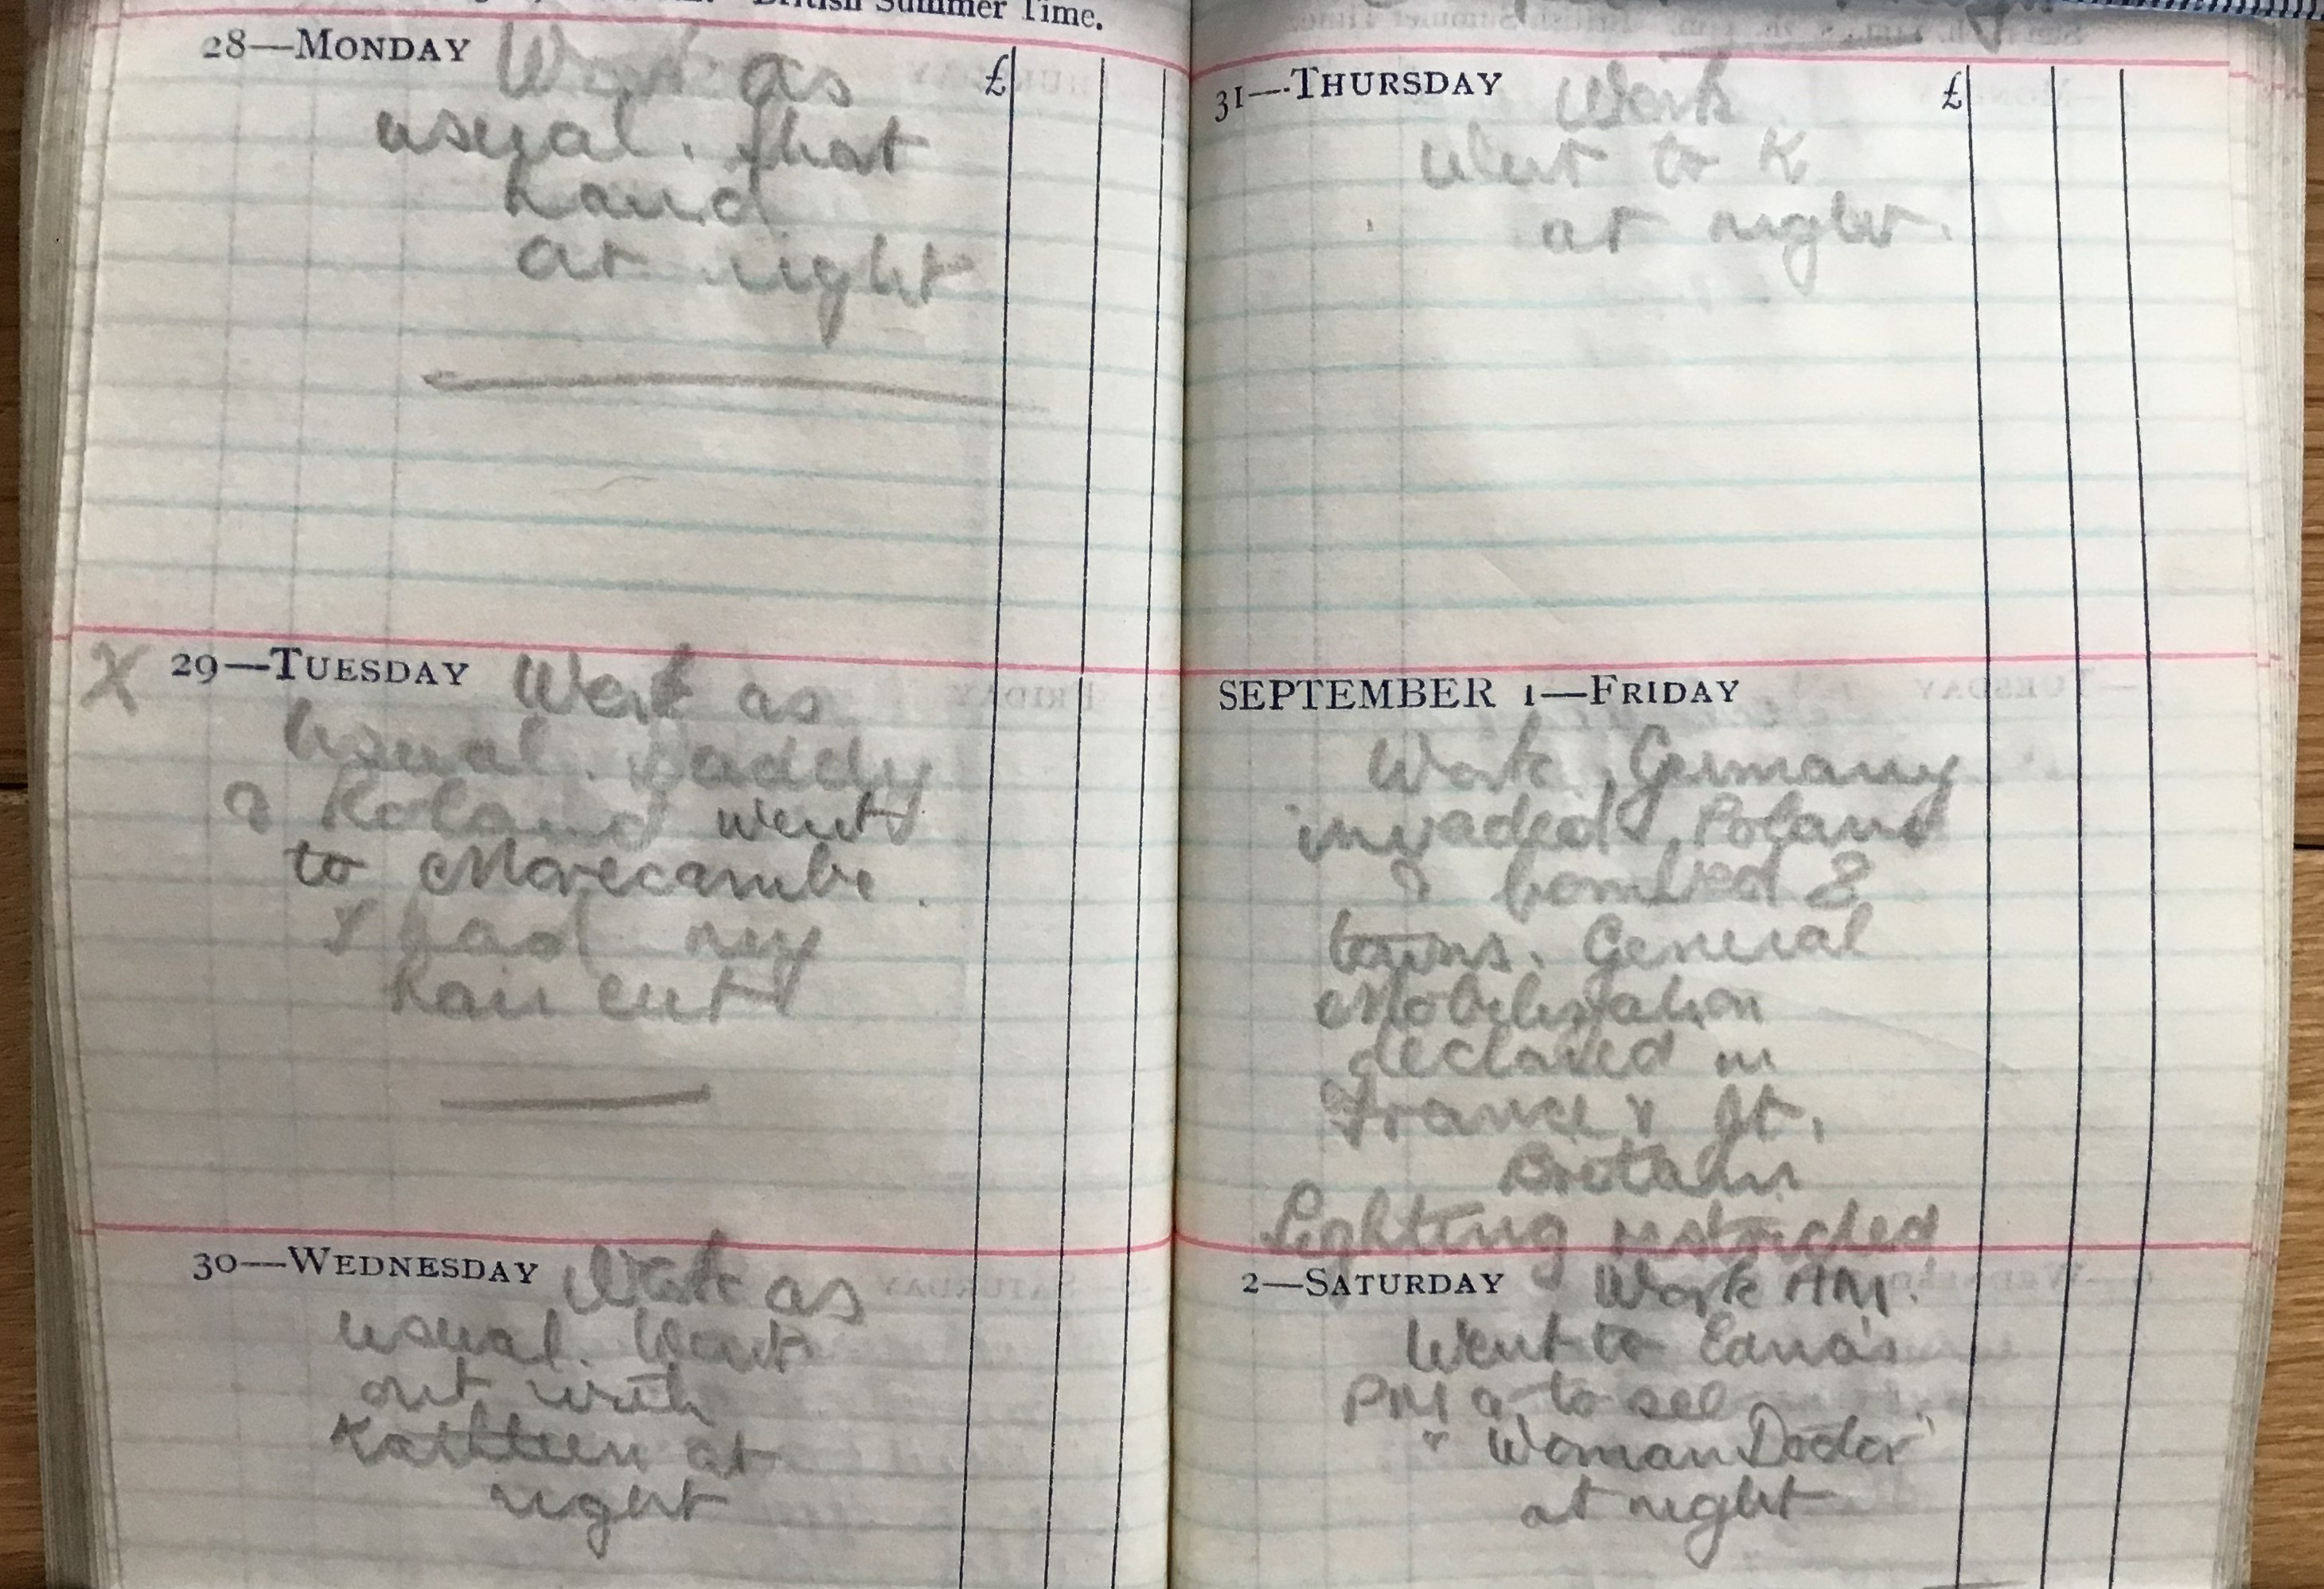 British Summer Time.
28—MONDAY Work as
£
usual. Short
hand
at night
X 29—TUESDAY Work as
usual. Daddy
& Roland went
to Morecambe.
I had my
hair cut
30—WEDNESDAY Work as
usual. Went
out with
Kathleen at
night
31—THURSDAY Work
£
Went to K
at night.
SEPTEMBER 1—FRIDAY
Work. Germany
invaded Poland
& bombed 8
towns. General
Mobilisation
declared in
France & Gt.
Britain
Lighting restricted
2—SATURDAY Work AM.
Went to Edna's
PM & to see
"Woman Doctor"
at night